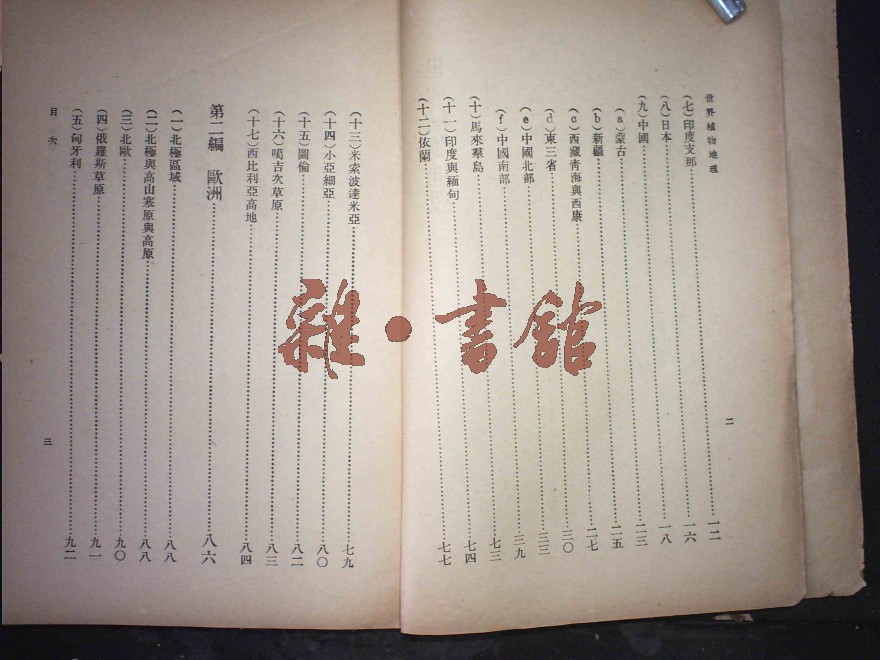 世界植物地理
(七)印度支那……一二
(八)日本……一六
(九)中國……一八
(a)蒙古……二三
(b)新疆……二五
(c)西藏青海與西康……二七
(d)東三省……三〇
(e)中國北部……三三
(f)中國南部……三九
(十)馬來羣島……七三
(十一)印度與緬甸……七四
(十二)依蘭……七七
二
(十三)米索波達米亞……七九
(十四)小亞細亞……八〇
(十五)圖倫……八二
(十六)噶吉次草原……八三
(十七)西比利亞高地……八四
第二編 歐洲……八六
(一)北極區域……八八
(二)北極與高山寒原與高原……八八
(三)北歐……九〇
(四)俄羅斯草原……九一
(五)匈牙利……九二
目次
三
雜·書館